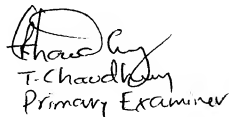 T. Chaudhury
Primary Examiner